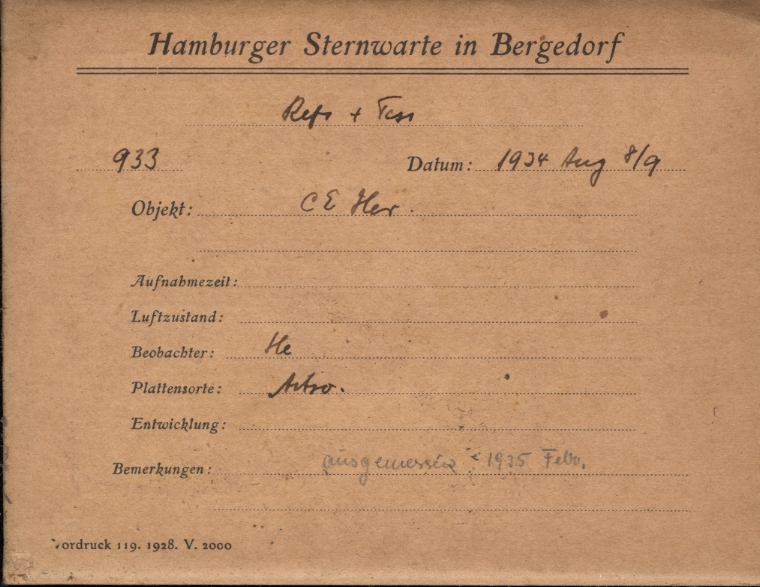 Hamburger Sternwarte in Bergedorf
Refr + Tess
933 Datum: 1934 Aug 8/9
Objekt: CE Her.
Aufnahmezeit:
Luftzustand:
Beobachter: He
Plattensorte: Astro.
Entwicklung:
Bemerkungen: ausgemessen 1935 Febr.
Vordruck 119. 1928. V. 2000